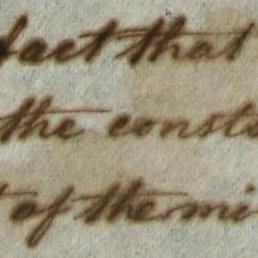 fact that
the consta
t of the mi